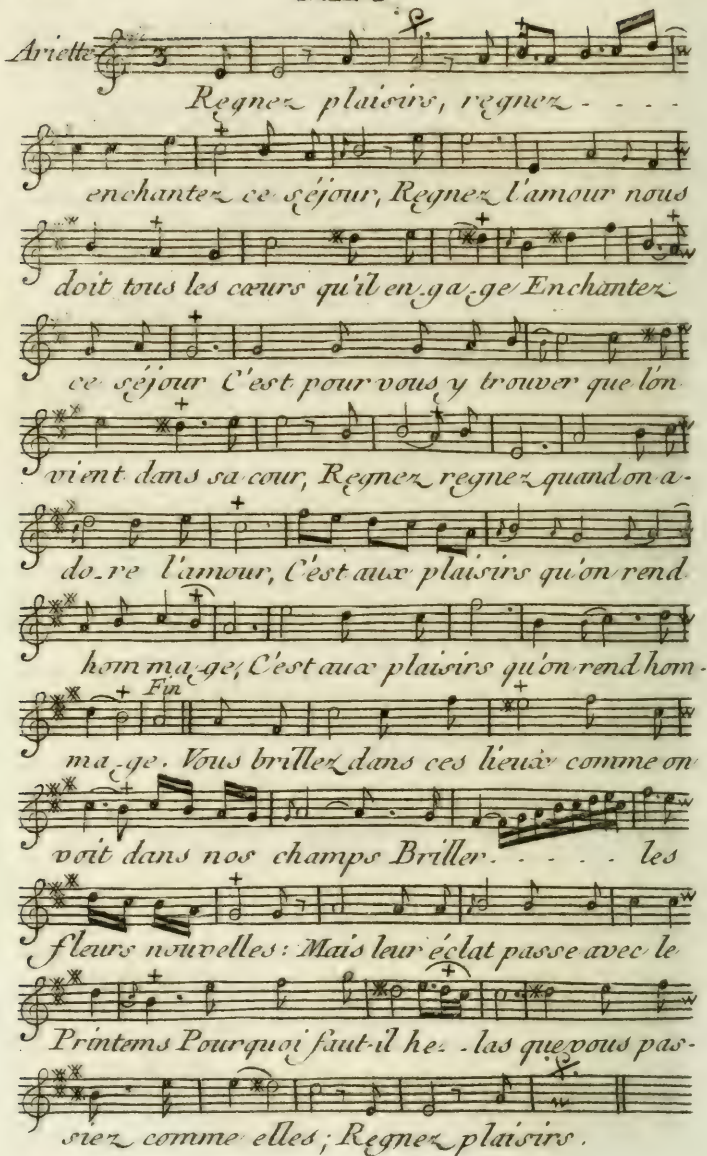 Ariette
3
Regnez plaisirs, regnez - - - -
enchantez ce séjour, Regnez l'amour nous
doit tous les cœurs qu'il en-ga-ge Enchantez
ce séjour C'est pour vous y trouver que l'on
vient dans sa cour, Regnez regnez quand on a-
do-re l'amour, C'est aux plaisirs qu'on rend
homma-ge, C'est aux plaisirs qu'on rend hom-
Fin
ma-ge. Vous brillez dans ces lieux comme on
voit dans nos champs Briller - - - - - - les
fleurs nouvelles: Mais leur éclat passe avec le
Printems Pourquoi faut-il he - - las que vous pas-
siez comme elles; Regnez plaisirs.